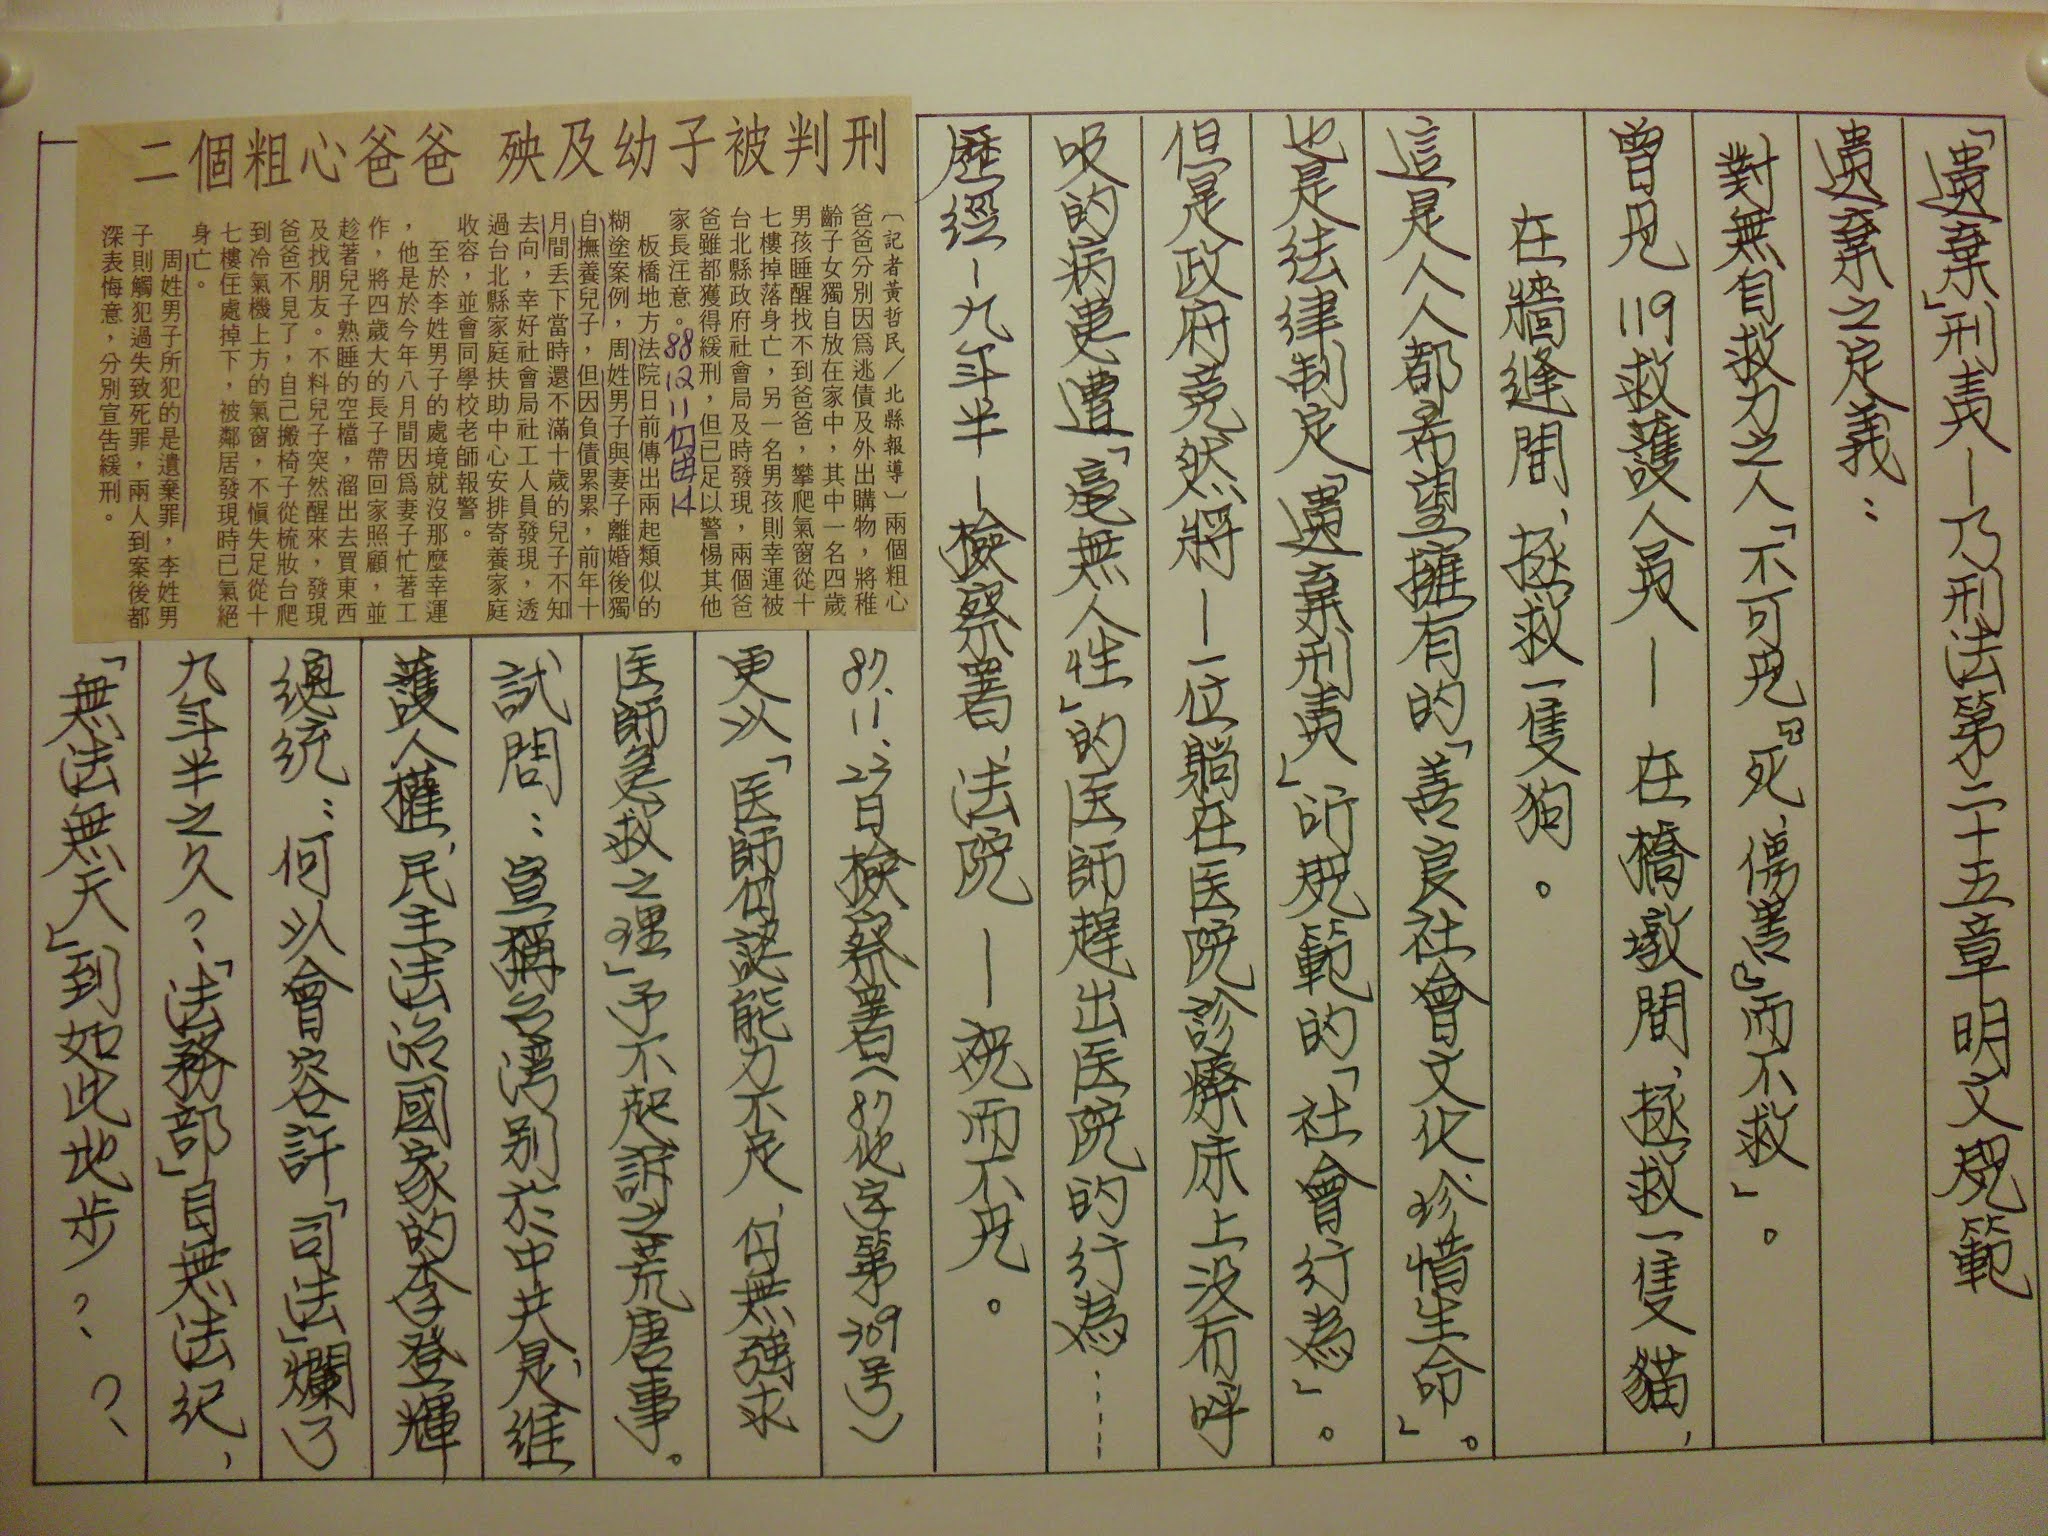 「遺棄」刑責—乃刑法第二十五章明文規範
遺棄之定義：
對無自救力之人「不可見『死、傷害』而不救」。
曾見119救護人員——在橋墩間，拯救一隻貓，
在牆縫間，拯救一隻狗。
這是人人都希望擁有的「善良社會文化，珍惜生命」。
也是法律制定「遺棄刑責」所規範的「社會行為」。
但是政府竟然將—一位躺在医院診療床上没有呼
吸的病患遭「毫無人性」的医師趕出医院的行為……
歷經—九年半—檢察署、法院——視而不見。
87、11、23日檢察署(87他字第309号)
更以「医師 認能力不足，但無強求
医師急救之理」予不起訴之荒唐事。
試問：宣稱台湾别於中共，是，維
護人權，民主法治國家的李登輝
總統：何以會容許「司法」爛了
九年半之久？、「法務部」自無法紀，
「無法無天」到如此地步？、？、
二個粗心爸爸 殃及幼子被判刑
〔記者黃哲民／北縣報導〕兩個粗心
爸爸分別因爲逃債及外出購物，將稚
齡子女獨自放在家中，其中一名四歲
男孩睡醒找不到爸爸，攀爬氣窗從十
七樓掉落身亡，另一名男孩則幸運被
台北縣政府社會局及時發現，兩個爸
爸雖都獲得緩刑，但已足以警惕其他
家長注意。88 12 11 自由 14
板橋地方法院日前傳出兩起類似的
糊塗案例，周姓男子與妻子離婚後獨
自撫養兒子，但因負債累累，前年十
月間丟下當時還不滿十歲的兒子不知
去向，幸好社會局社工人員發現，透
過台北縣家庭扶助中心安排寄養家庭
收容，並會同學校老師報警。
至於李姓男子的處境就沒那麼幸運
，他是於今年八月間因爲妻子忙著工
作，將四歲大的長子帶回家照顧，並
趁著兒子熟睡的空檔，溜出去買東西
及找朋友。不料兒子突然醒來，發現
爸爸不見了，自己搬椅子從梳妝台爬
到冷氣機上方的氣窗，不愼失足從十
七樓住處掉下，被鄰居發現時已氣絕
身亡。
周姓男子所犯的是遺棄罪，李姓男
子則觸犯過失致死罪，兩人到案後都
深表悔意，分別宣告緩刑。